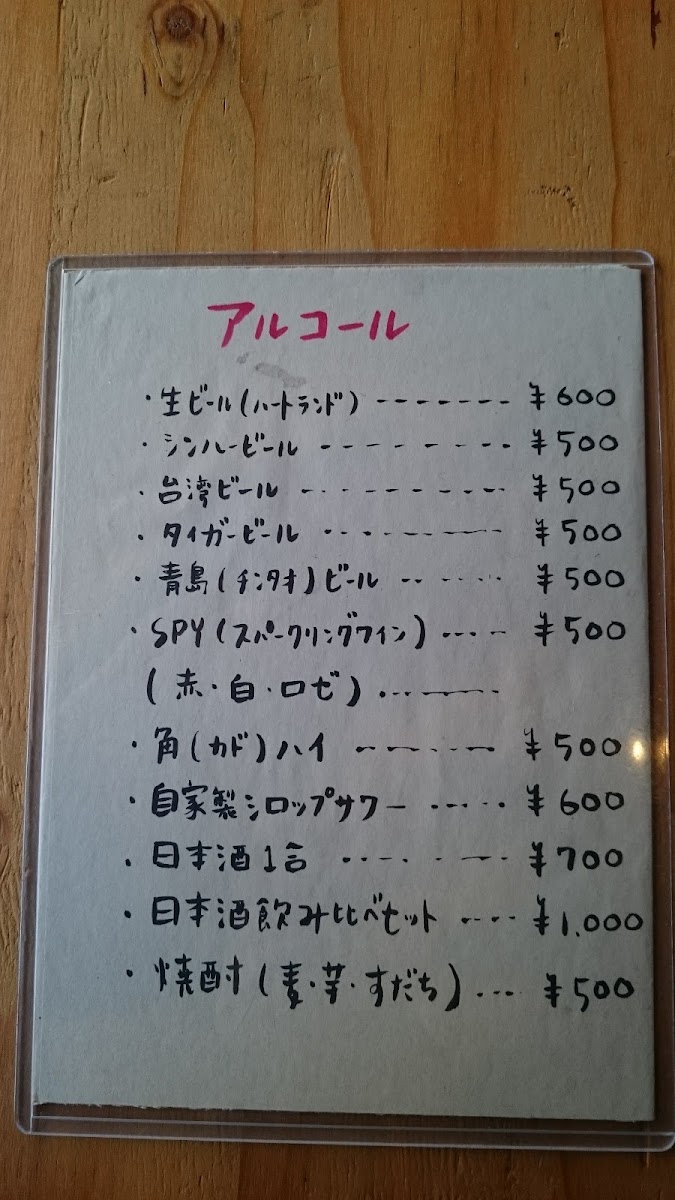 アルコール
・生ビール(ハートランド) -------- ¥600
・シンハービール -------- ¥500
・台湾ビール -------- ¥500
・タイガービール -------- ¥500
・青島(チンタオ)ビール ------ ¥500
・SPY(スパークリングワイン) ---- ¥500
(赤・白・ロゼ) ------
・角(カド)ハイ ------ ¥500
・自家製シロップサワー ----- ¥600
・日本酒1合 ------ ¥700
・日本酒飲み比べセット ---- ¥1,000
・焼酎(麦・芋・すだち) --- ¥500